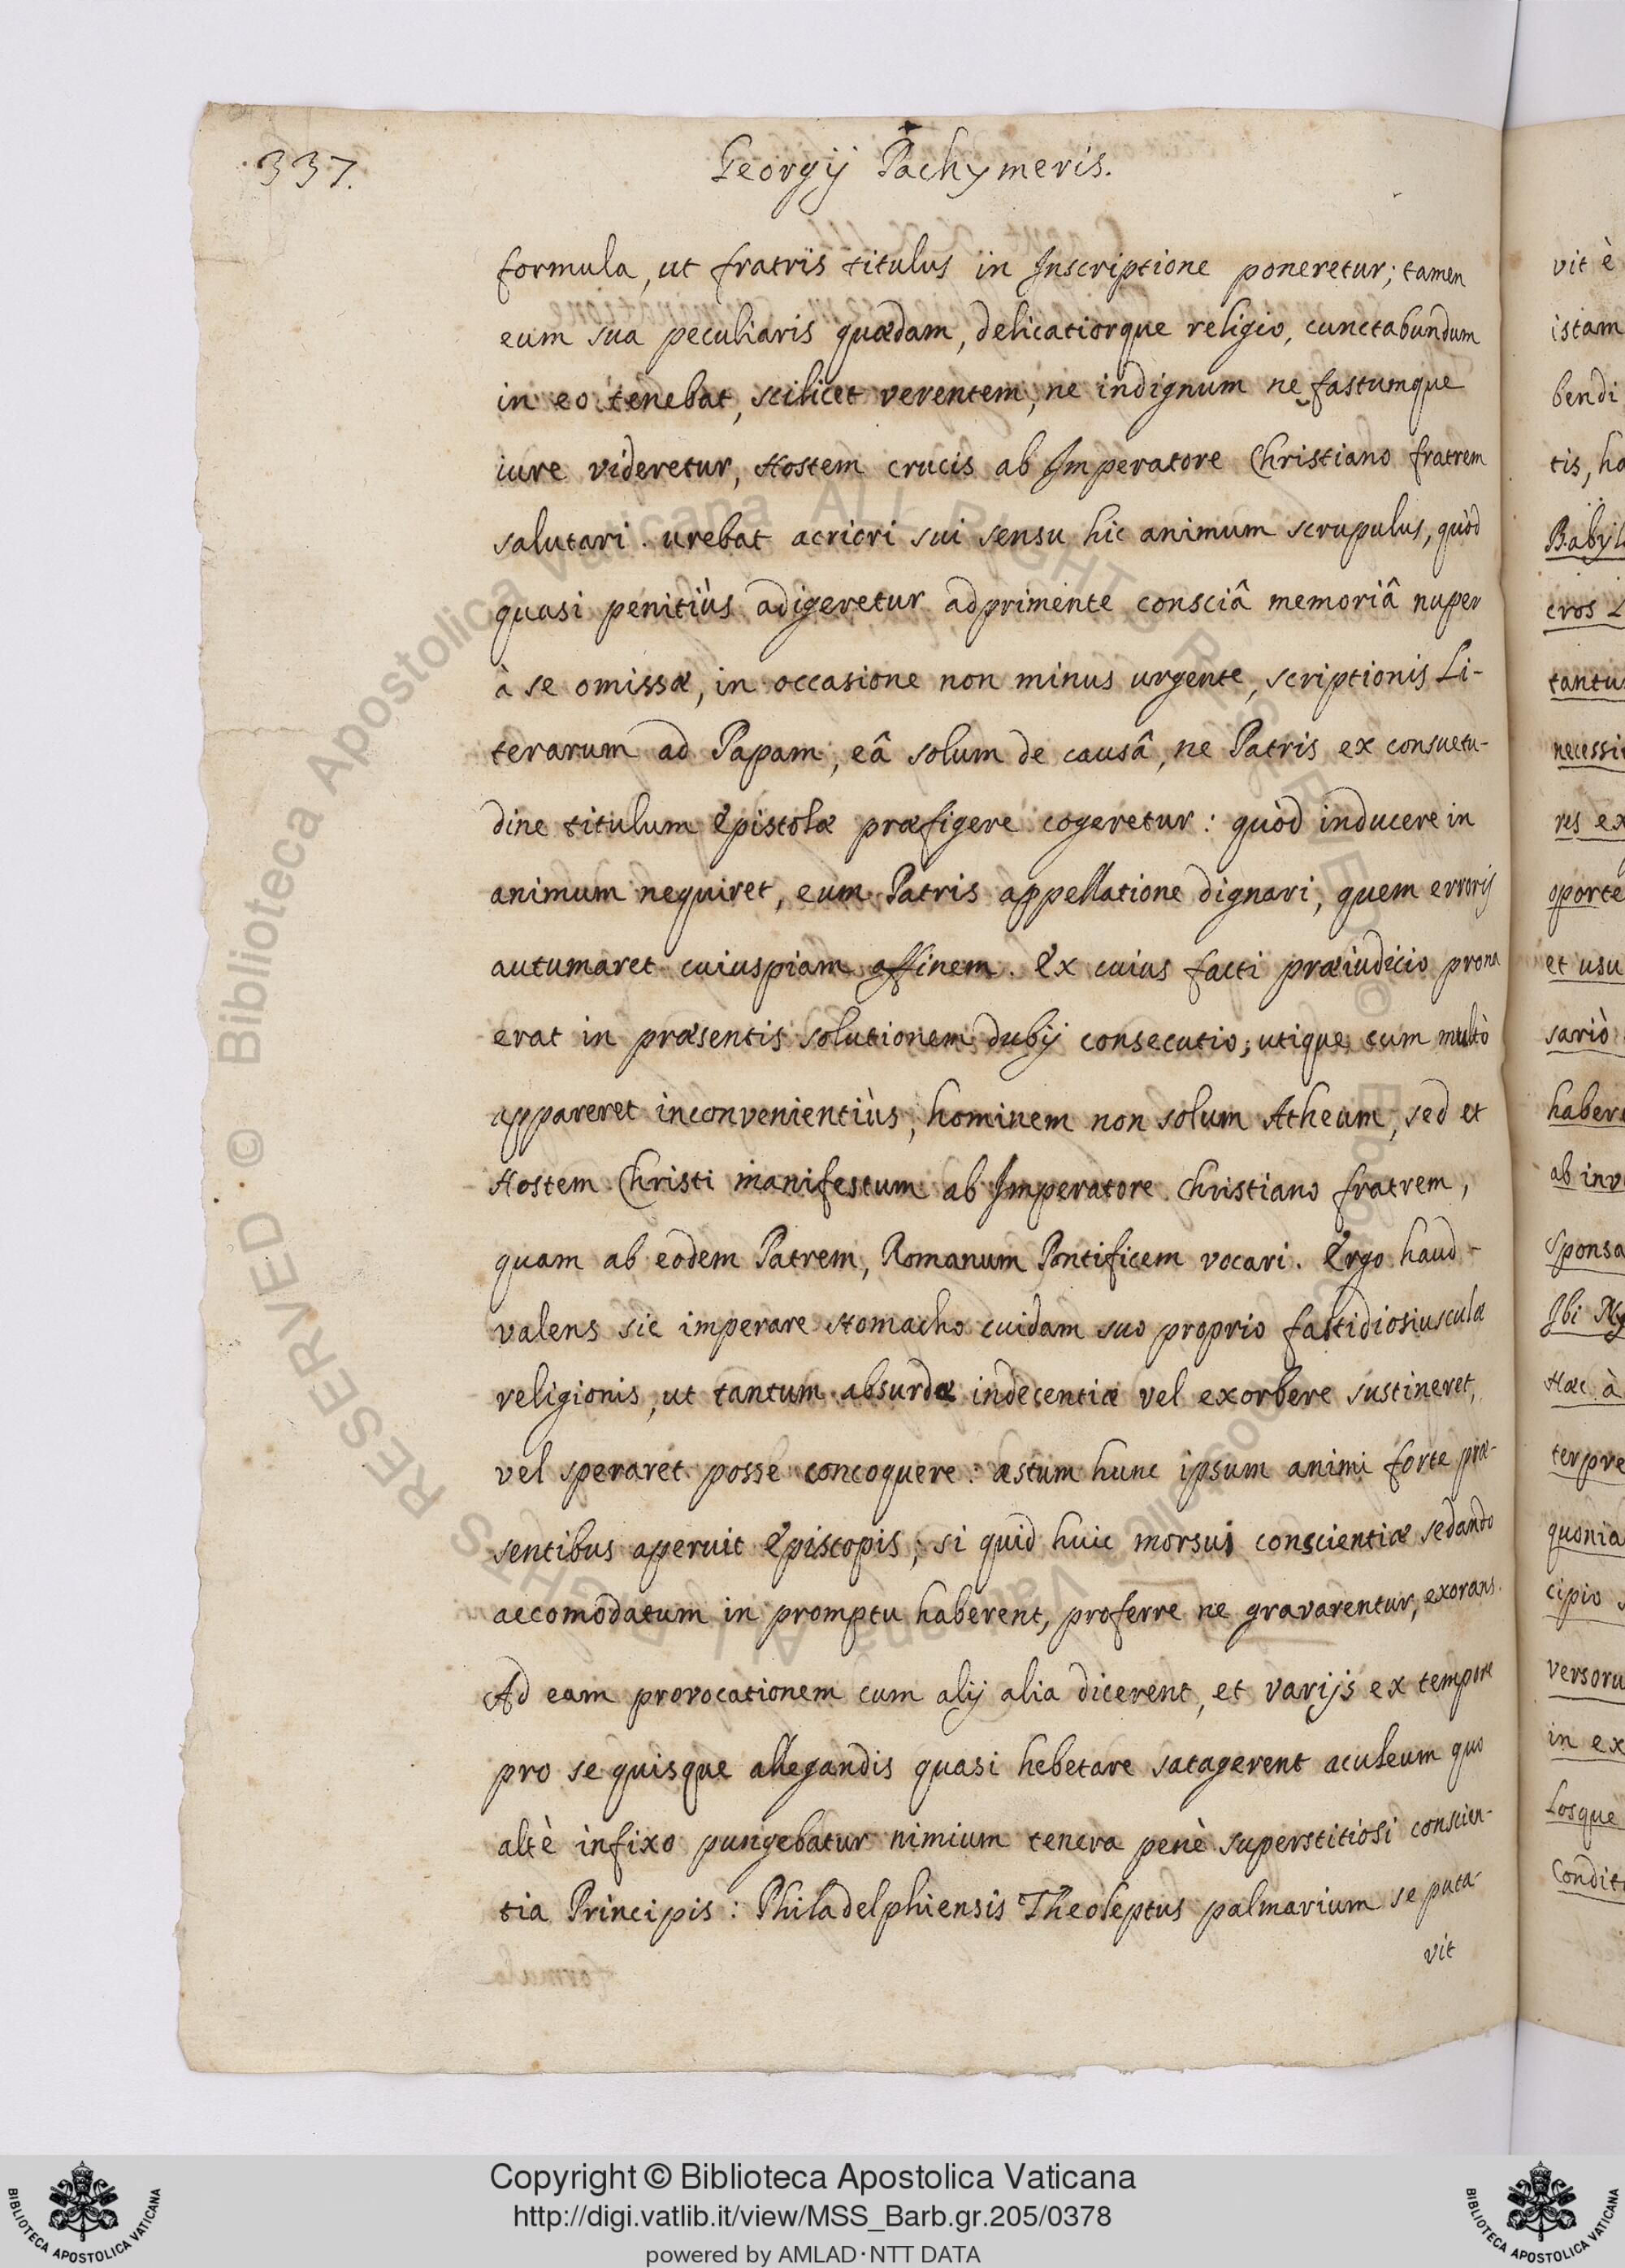 337.
Georgij Pachymeris.
formula, ut fratris titulus in Inscriptione poneretur; tamen
eum sua peculiaris quædam, delicatiorque religio, cunctabundum
in eo tenebat, scilicet verentem, ne indignum ne fastumque
iure videretur, Hostem crucis ab Imperatore Christiano fratrem
salutari. urebat acriori sui sensu hic animum scrupulus, quòd
quasi penitiùs adigeretur adprimente consciâ memoriâ nuper
à se omissæ, in occasione non minus urgente, scriptionis Li-
terarum ad Papam, eâ solum de causâ, ne Patris ex consuetu-
dine titulum Epistolæ præfigere cogeretur: quòd inducere in
animum nequiret, eum Patris appellatione dignari, quem erroris
autumaret cuiuspiam affinem. Ex cuius facti præiudicio prona
erat in præsentis solutionem dubij consecutio; utique cum multò
appareret inconvenientiùs, hominem non solum Atheum, sed et
Hostem Christi manifestum ab Imperatore Christiano fratrem,
quam ab eodem Patrem, Romanum Pontificem vocari. Ergo haud-
valens sic imperare stomacho cuidam suo proprio fastidiosiusculæ
religionis, ut tantum absurdæ indecentiæ vel exorbere sustineret,
vel speraret posse concoquere: æstum hunc ipsum animi forte præ-
sentibus aperuit Episcopis; si quid huic morsui conscientiæ sedando
accomodatum in promptu haberent, proferre ne gravarentur, exorans.
Ad eam provocationem cum alij alia dicerent, et varijs ex tempore
pro se quisque allegandis quasi hebetare satagerent aculeum quo
altè infixo pungebatur nimium tenera penè superstitiosi conscien-
tia Principis: Philadelphiensis Theoleptus palmarium se puta-
vit
vit è
istam
bendi
tis, ho
Babyl
cros L
tantu
necessi
res ex
oporte
et usu
sariò
haber
ab inv
Sponsa
Ibi Ny
Hæc à
terpre
quonia
cipio s
versoru
in ex
Losque
Condit
© Biblioteca Apostolica Vaticana ALL RIGHTS RESERVED
Copyright © Biblioteca Apostolica Vaticana
http://digi.vatlib.it/view/MSS_Barb.gr.205/0378
powered by AMLAD·NTT DATA
BIBLIOTECA APOSTOLICA VATICANA
BIBLIOTECA APOSTOLICA VATICANA